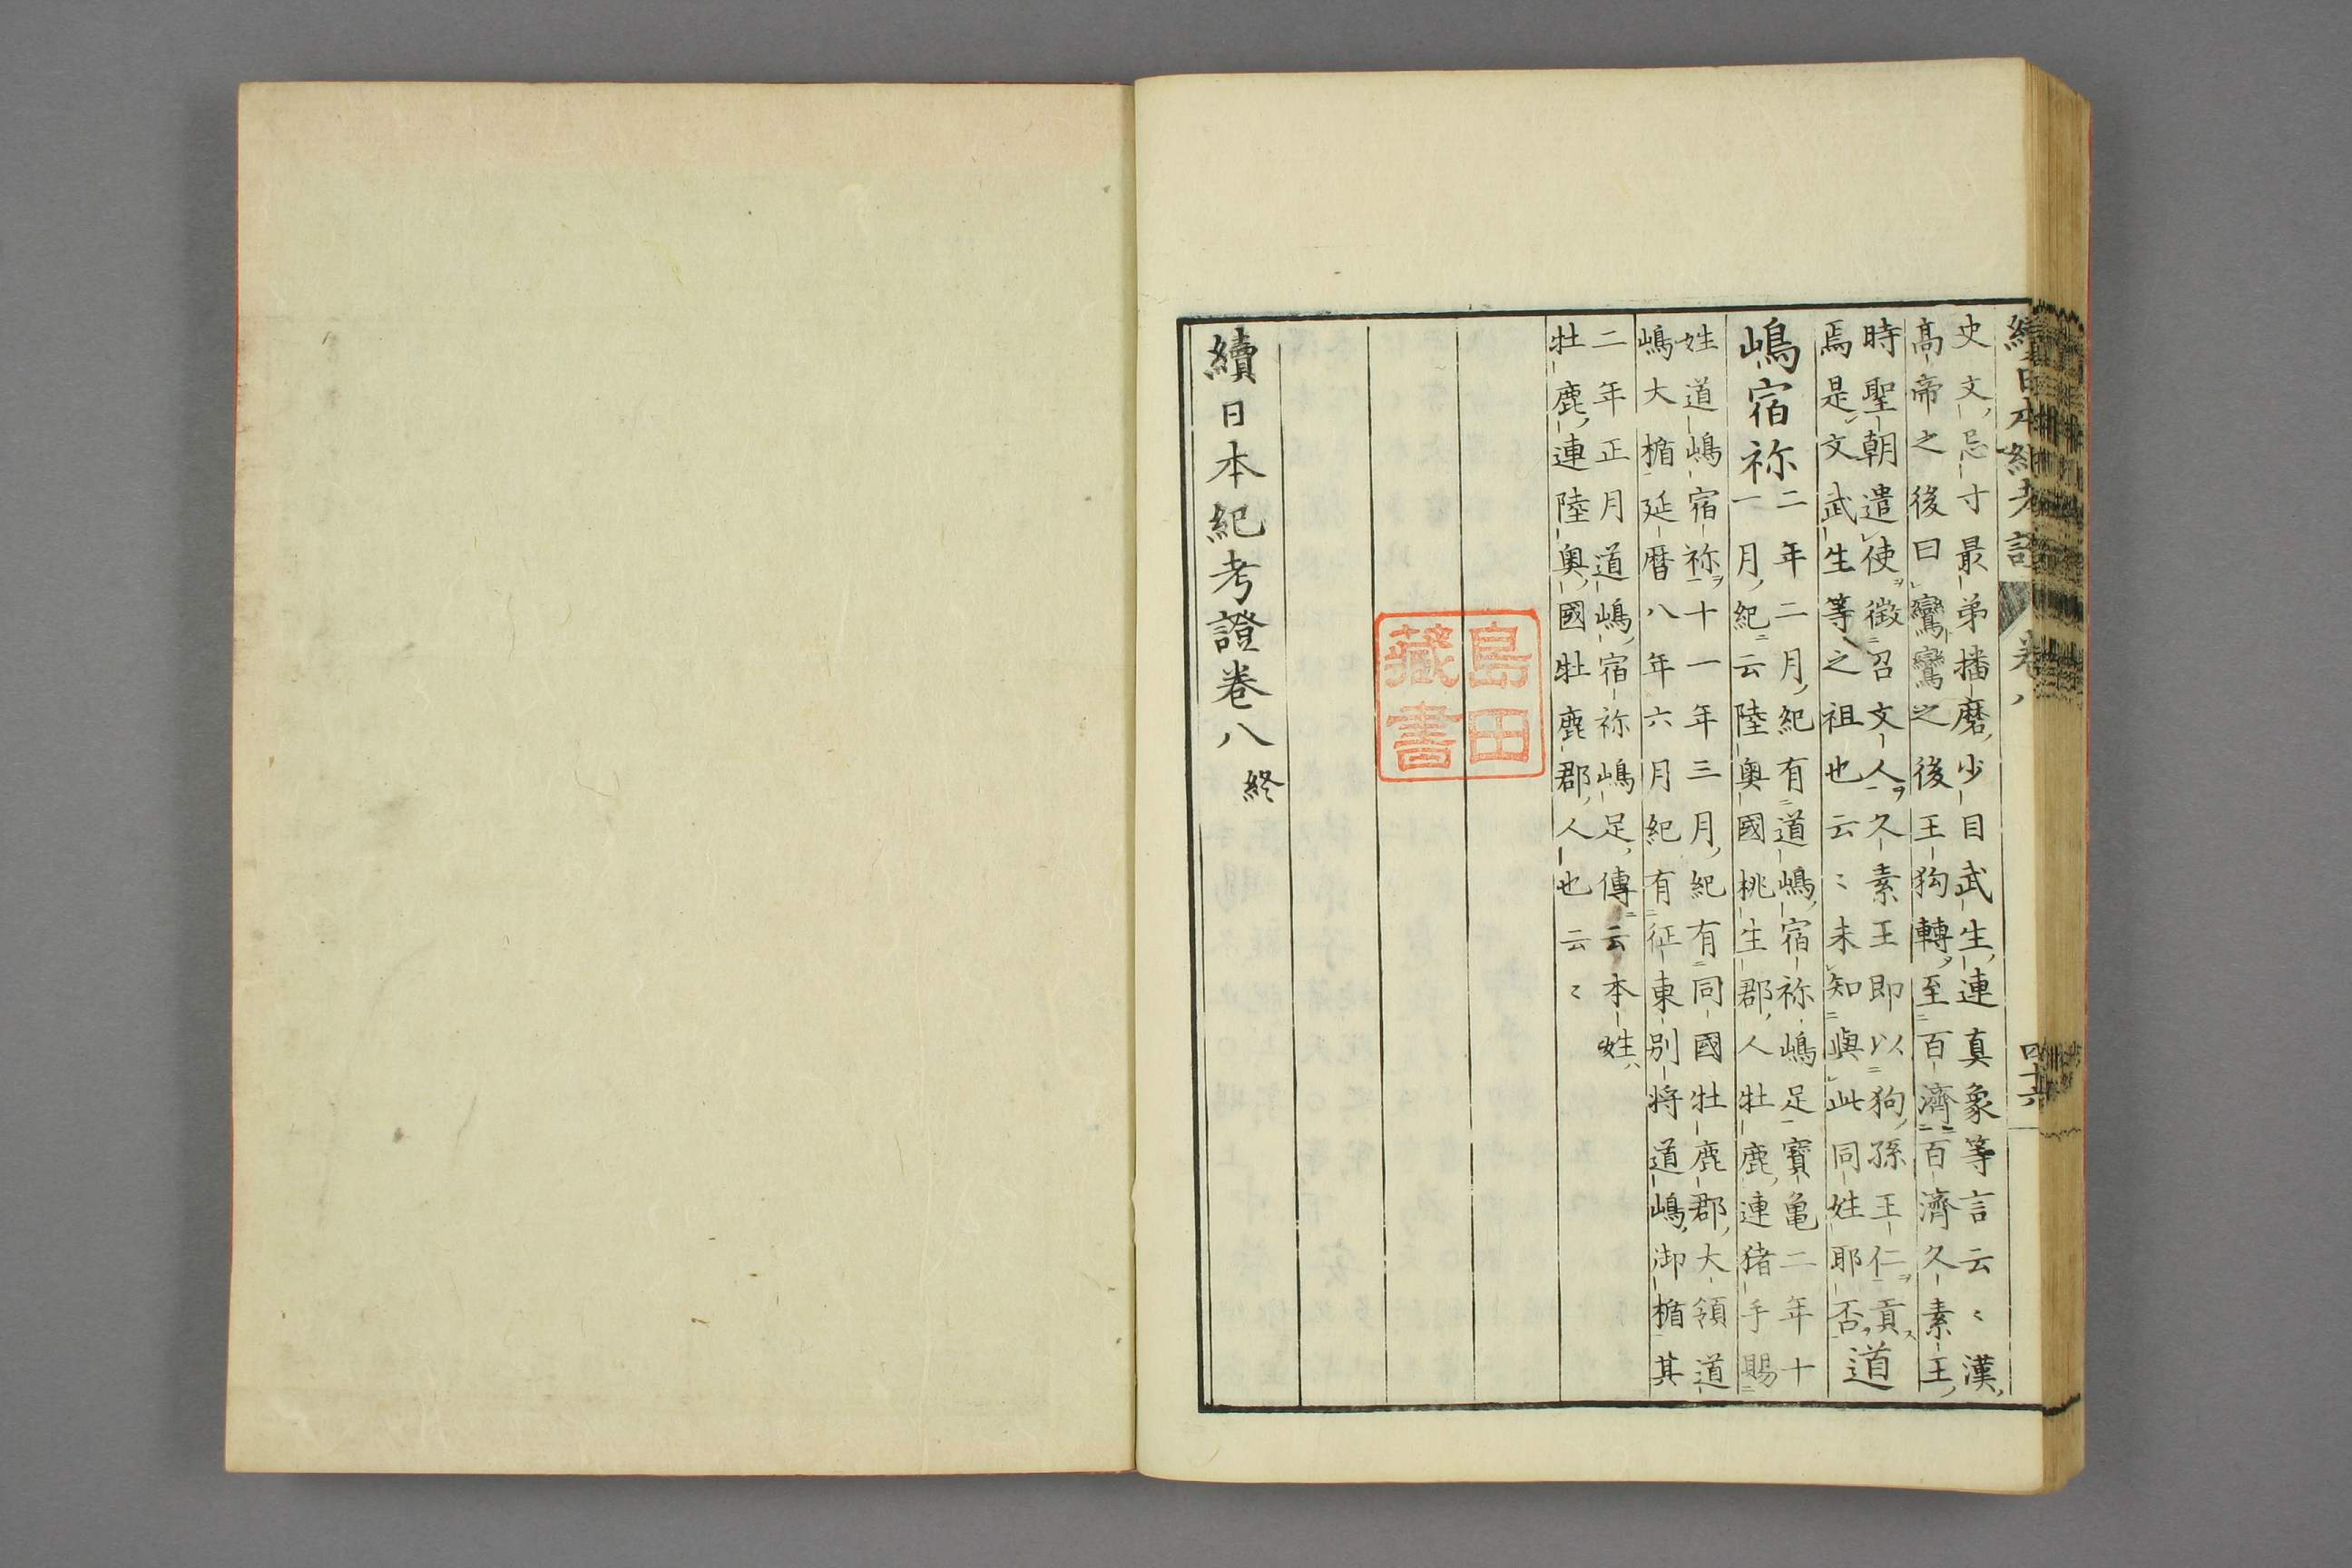 續日本紀考證 卷八 四十六
史文忌寸最弟播磨少目武生連真象等言云〻漢
高帝之後曰鸞鸞之後王狗轉至百濟百濟久素王
時聖朝遣使徵召文人久素王即以狗孫王仁貢
焉是文武生等之祖也云〻未知與此同姓耶否
道
嶋宿祢
二年二月紀有道嶋宿祢嶋足寶亀二年十
一月紀云陸奧國桃生郡人牡鹿連猪手賜
姓道嶋宿祢十一年三月紀有同國牡鹿郡大領道
嶋大楯延暦八年六月紀有征東別将道嶋御楯其
二年正月道嶋宿祢嶋足傳云本姓
牡鹿連陸奧國牡鹿郡人也云〻
島田
藏書
續日本紀考證卷八終